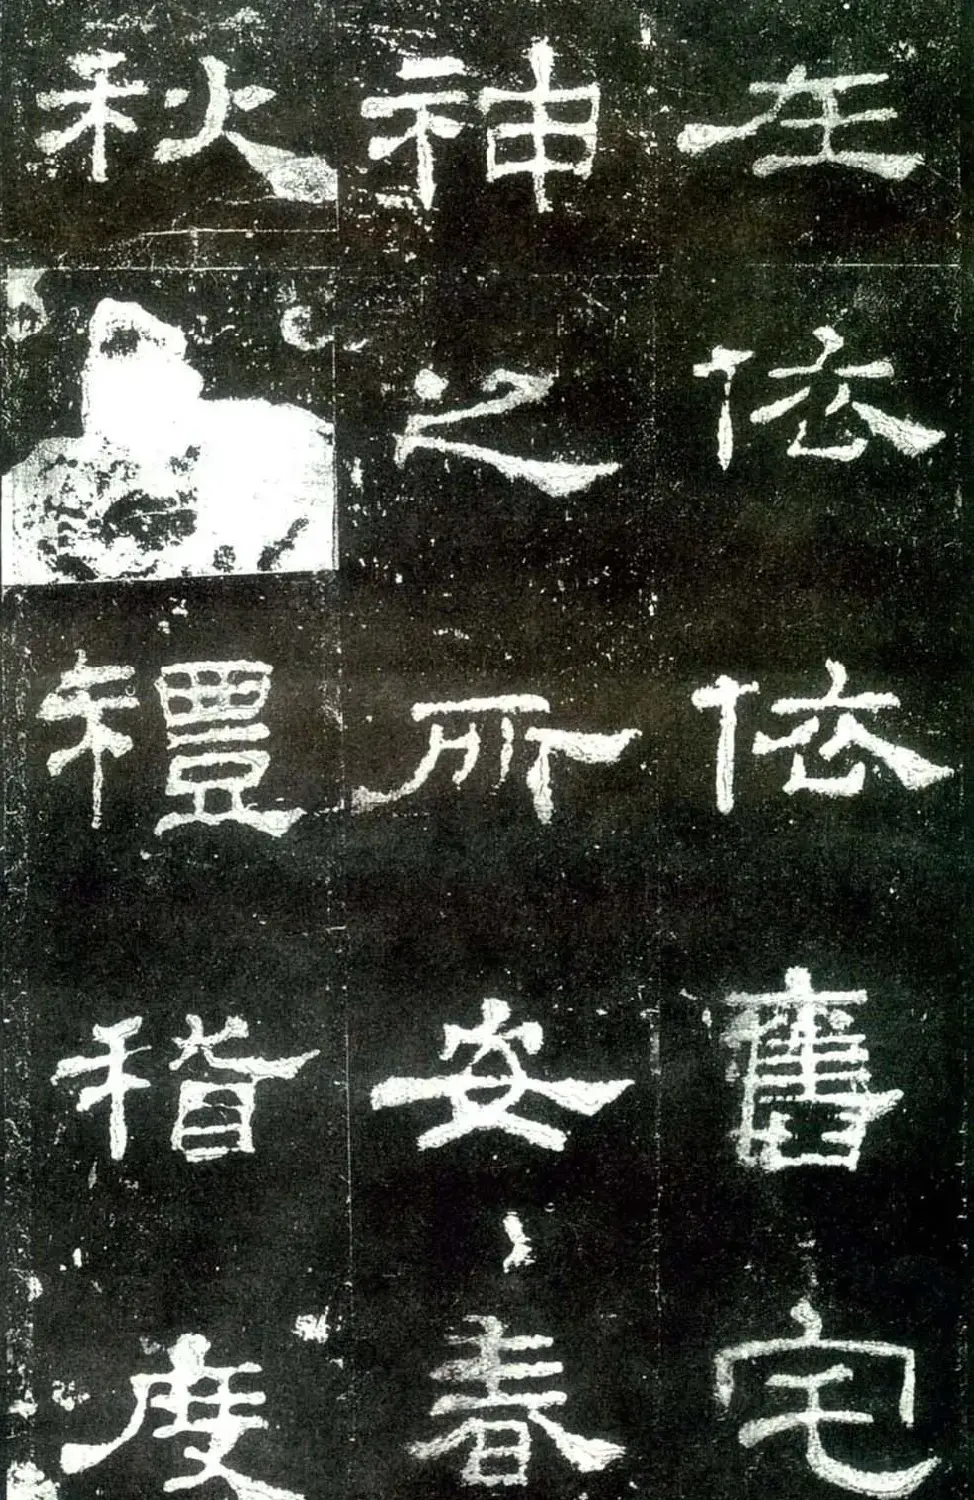 在依依舊宅
神之所安春
秋禮稽度